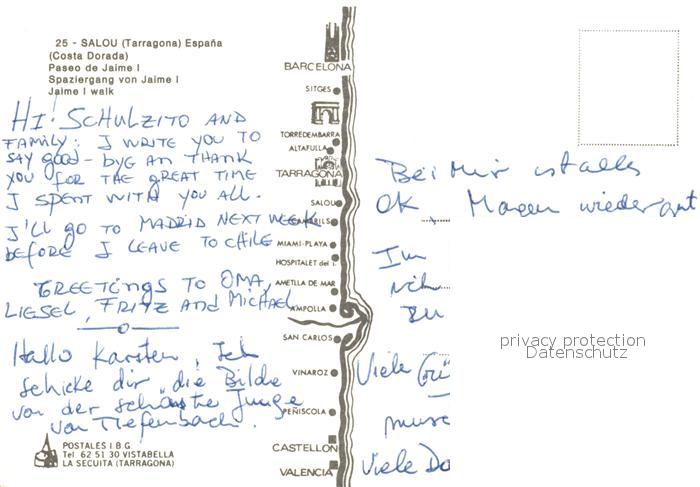 25 - SALOU (Tarragona) España
(Costa Dorada)
Paseo de Jaime I
Spaziergang von Jaime I
Jaime I walk
HI: SCHULZITO AND
FAMILY: I WRITE YOU TO
SAY good-bye AN THANK
YOU FOR THE GREAT TIME
I SPENT WITH YOU ALL.
I'LL GO TO MADRID NEXT WEEK
BEFORE I LEAVE TO CHILE
GREETINGS TO OMA,
LIESEL, FRITZ AND MICHAEL
Hallo Karsten, Ich
schicke dir die Bilde
von der schönste Junge
von Tiefenbach.
POSTALES I.B.G.
Tel. 62 51 30 VISTABELLA
LA SECUITA (TARRAGONA)
BARCELONA
SITGES
TORREDEMBARRA
ALTAFULLA
TARRAGONA
SALOU
CAMBRILS
MIAMI-PLAYA
HOSPITALET del I.
AMETLLA DE MAR
AMPOLLA
SAN CARLOS
VINAROZ
PEÑISCOLA
CASTELLON
VALENCIA
Bei Mir ist alles
OK. Magen wieder gut
Im
zu
Viele Grü
Viele Do
privacy protection
Datenschutz